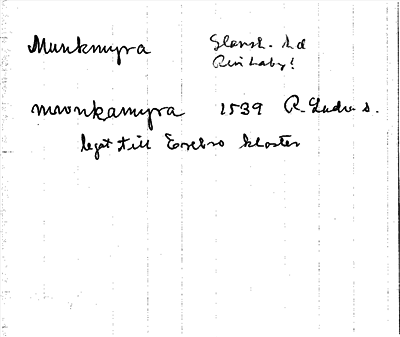 Munkmyra Glansh. hd
Rinkaby!
mwnkamyra 1539 R. Ludv s.
legat till Örebro kloster